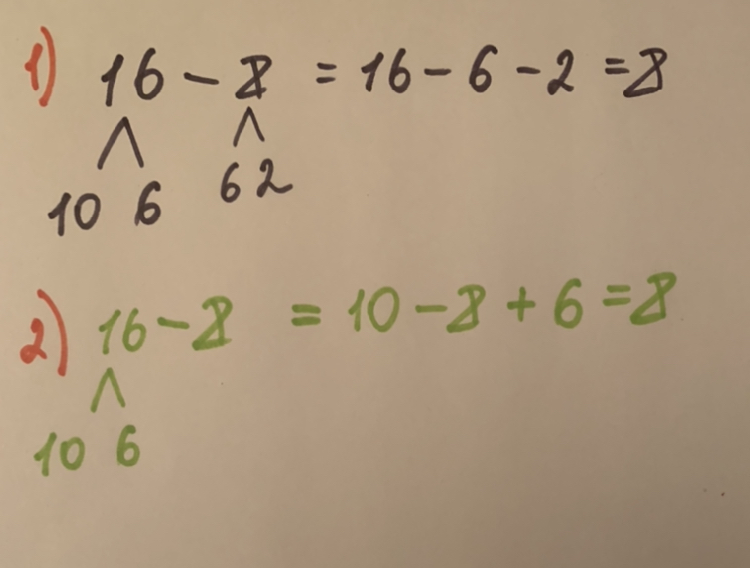 1) 16 - 8 = 16 - 6 - 2 = 8
10 6 6 2
2) 16 - 8 = 10 - 8 + 6 = 8
10 6